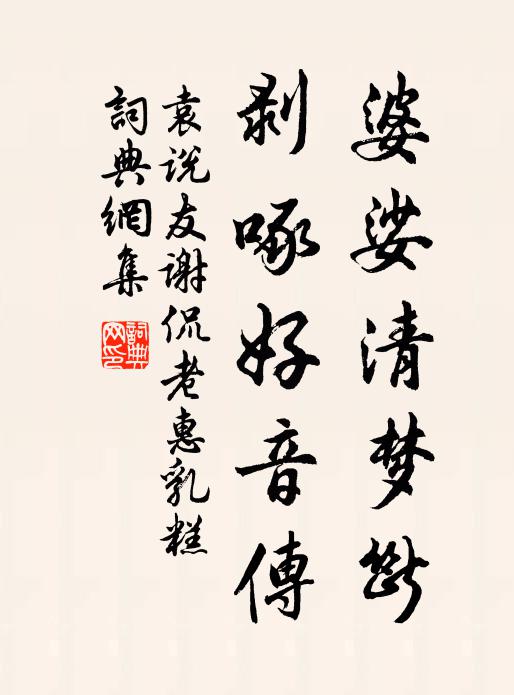 婆娑清梦断
剥啄好音傳
袁说友谢侃老惠乳糕
詞典網集
詞典网印